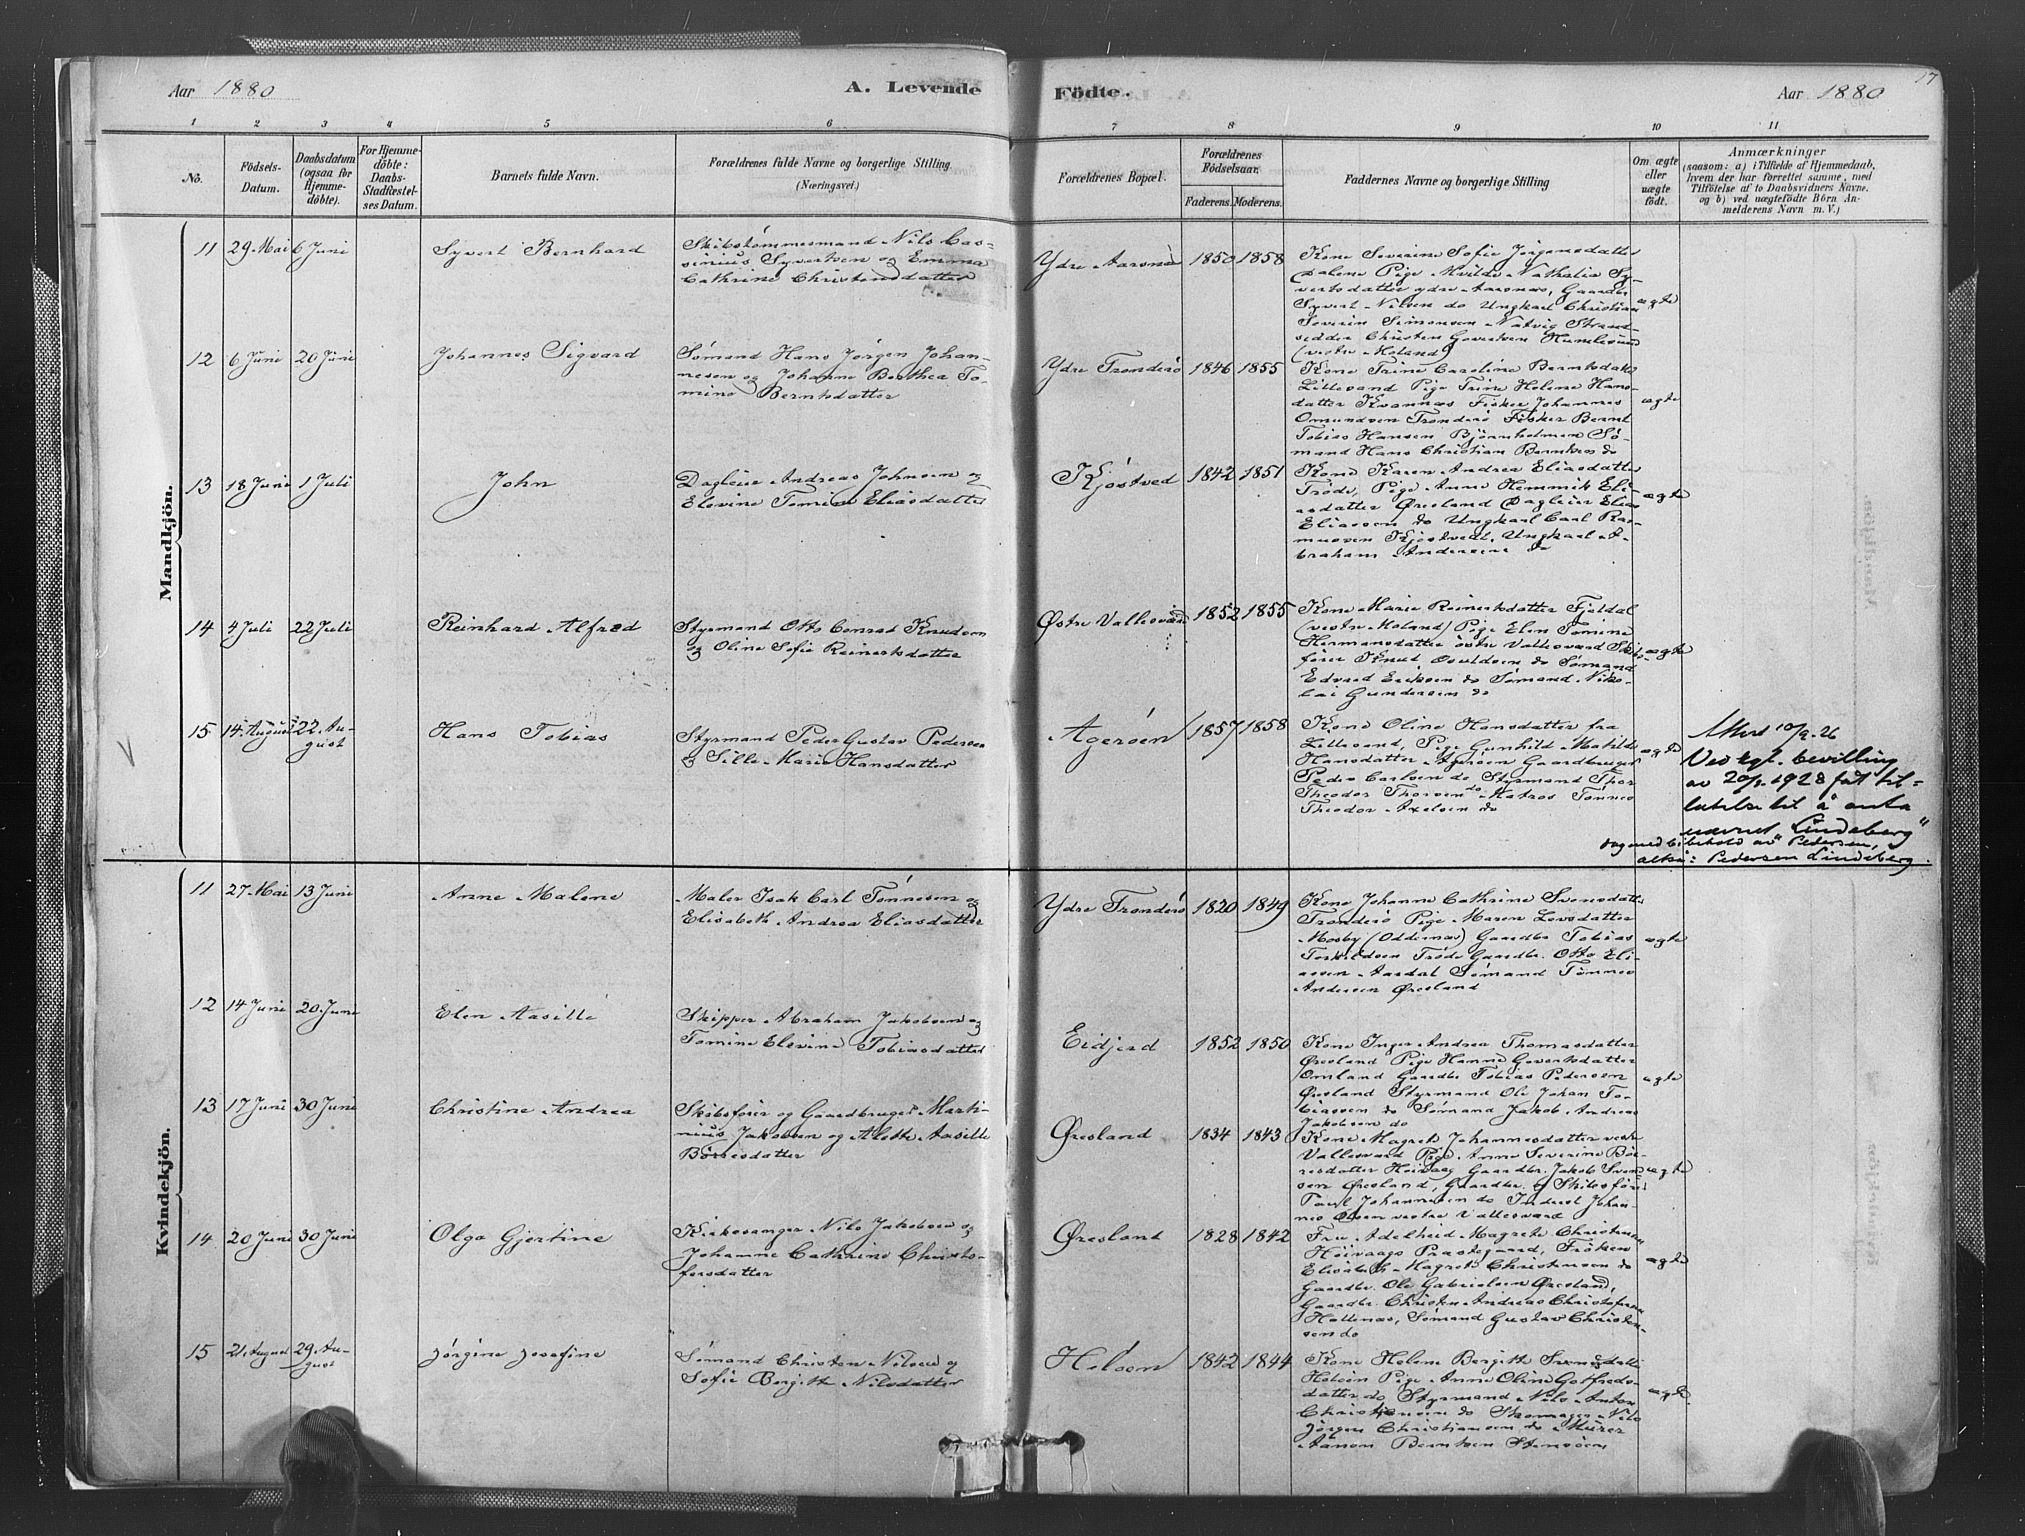 17
Aar 1880
A. Levende
Födte.
Aar 1880
1 2 3 4 5 6 7 8 9 10 11
No.
Födsels-
Datum.
Daabsdatum
(ogsaa for
Hjemme-
döbte).
For Hjemme-
döbte:
Daabs-
Stadfæstel-
ses Datum.
Barnets fulde Navn.
Forældrenes fulde Navne og borgerlige Stilling
(Næringsvei.)
Forældrenes Bopæl.
Forældrenes
Födselsaar.
Faderens. Moderens.
Faddernes Navne og borgerlige Stilling
Om ægte
eller
uægte
födt.
Anmærkninger
(saasom: a) i Tilfælde af Hjemmedaab,
hvem der har forrettet samme, med
Tilföielse af to Daabsvidners Navne.
og b) ved uægtefödte Börn An-
melderens Navn m. V.)
Mandkjön.
11 29 Mai 6 Juni
Syvert Bernhard
Skibstømmesmand Nils Cas-
sinius Syvertsen og Emma
Cathrine Christensdatter
Ydre Aarsnæs
1850 1858
Kone Severine Sofie Jörgensdatter
Dalene Pige Nathalia Sy-
vertsdatter ydre Aarsnæs, Gaardbr
Syvert Nilsen do Ungkarl Christian
Severin Simonsen Natvig Strand-
sidder Christen Govertsen Humlesund
(vestre Moland)
ægte
12 6 Juni 20 Juni
Johannes Sigvard
Sømand Hans Jörgen Johan-
nesen og Johanne Berthea To-
mine Berntsdatter
Ydre Trønderö
1846 1855
Kone Trine Caroline Berntsdatter
Lillesand Pige Trine Helene Hans-
datter Kvannæs Fisker Johannes
Omundsen Trønderö Fisker Bernt
Tobias Hansen Bjørnholmen Sö-
mand Hans Christian Berntsen do
ægte
13 18 Juni 1 Juli
John
Dagleier Andreas Johnsen og
Elevine Tomine Eliasdatter
Kjöstved
1842 1851
Kone Karen Andrea Eliasdatter
Tröde, Pige Anne Hemmik Eli-
asdatter Øresland Dagleier Elias
Eliassen do Ungkarl Carl Ras-
mussen Kjöstvedt, Ungkarl A-
braham Andersen do
ægte
14 4 Juli 22 Juli
Reinhard Alfred
Styrmand Otto Conrad Knudsen
og Oline Sofie Reinertsdatter
Østre Vallesværd
1852 1855
Kone Marie Reinertsdatter Fjeldal
(vestre Moland) Pige Elen Tomine
Hermansdatter östre Vallesværd Skibs-
förer Knud do Sømand
Edvard Eriksen do Sømand Niko-
lai Gundersen do
ægte
15 14 August 22 Au-
gust
Hans Tobias
Styrmand Peder Gustav Pedersen
og Sille Marie Hansdatter
Agerøen
1857 1858
Kone Oline Hansdatter fra
Lillesand, Pige Gunhild Matilde
Hansdatter Agerøen Gaardbruger
Peder Carlsen do Styrmand Thor
Theodor Thorsen do Matros Tønnes
Theodor Axelsen do
ægte
Attest 10/9 26
Ved kgl. bevilling
av 20/1 1928 fåt til-
latelse til å anta
navnet "Lindeberg"
dog med bibehold av "Pedersen,
altså: Pedersen Lindeberg.
Kvindekjön.
11 27 Mai 13 Juni
Anne Malene
Maler Isak Carl Tønnesen og
Elisabeth Andrea Eliasdatter
Ydre Trønderö
1820 1849
Kone Johanne Cathrine Svensdatter
Trønderö Pige Maren Lovsdatter
Mosby (Oddernæs) Gaardbr Tobias
Terkildsen Tröde Gaardbr. Otto Eli-
assen Aardal Sømand Tønnes
Andersen Øresland
ægte
12 14 Juni 20 Juni
Elen Aasille
Skipper Abraham Jakobsen og
Tomine Elevine Tobiasdatter
Eidjord
1852 1850
Kone Inger Andrea Thomasdatter
Øresland Pige Hanne Govertsdatter
Omland Gaardbr Tobias Pedersen
Øresland Styrmand Ole Johan To-
biassen do Sømand Jakob Andreas
Jakobsen do
ægte
13 17 Juni 30 Juni
Christine Andrea
Skibsförer og Gaardbruger Marti-
nius Jakobsen og Alette Aasille
Börresdatter
Øresland
1834 1843
Kone Magrete Johannesdatter vestre
Vallesværd Pige Anne Severine Bör-
resdatter Höivaag Gaardbr. Jakob Svend-
sen Øresland, Gaardbr. og Skibsförer
Paul Johannesen do Inderst Johan-
nes Olsen vestre Vallesværd
ægte
14 20 Juni 30 Juni
Olga Gjertine
Kirkesanger Nils Jakobsen og
Johanne Cathrine Christo-
fersdatter
Øresland
1828 1842
Fru Adelheid Magrete Christensen
Höivaags Prestegaard, Fröken
Elisabeth Magrete Christensen do
Gaardbr. Ole Gabrielsen Øresland,
Gaardbr. Christen Andreas Christofersen
Hellenæs, Sømand Gustav Christen-
sen do
ægte
15 21 August 29 Au-
gust
Jörgine Josefine
Sømand Christen Nilsen og
Sofie Bergitte Nilsdatter
Helsöen
1842 1844
Kone Helene Bergitte Svensdatter
Helsöen Pige Anne Oline Gotfreds-
datter do Styrmand Nils Anton
Christensen do Skomager Nils
Jörgen Christiansen do Murer
Aanon Berntsen Stensöen
ægte